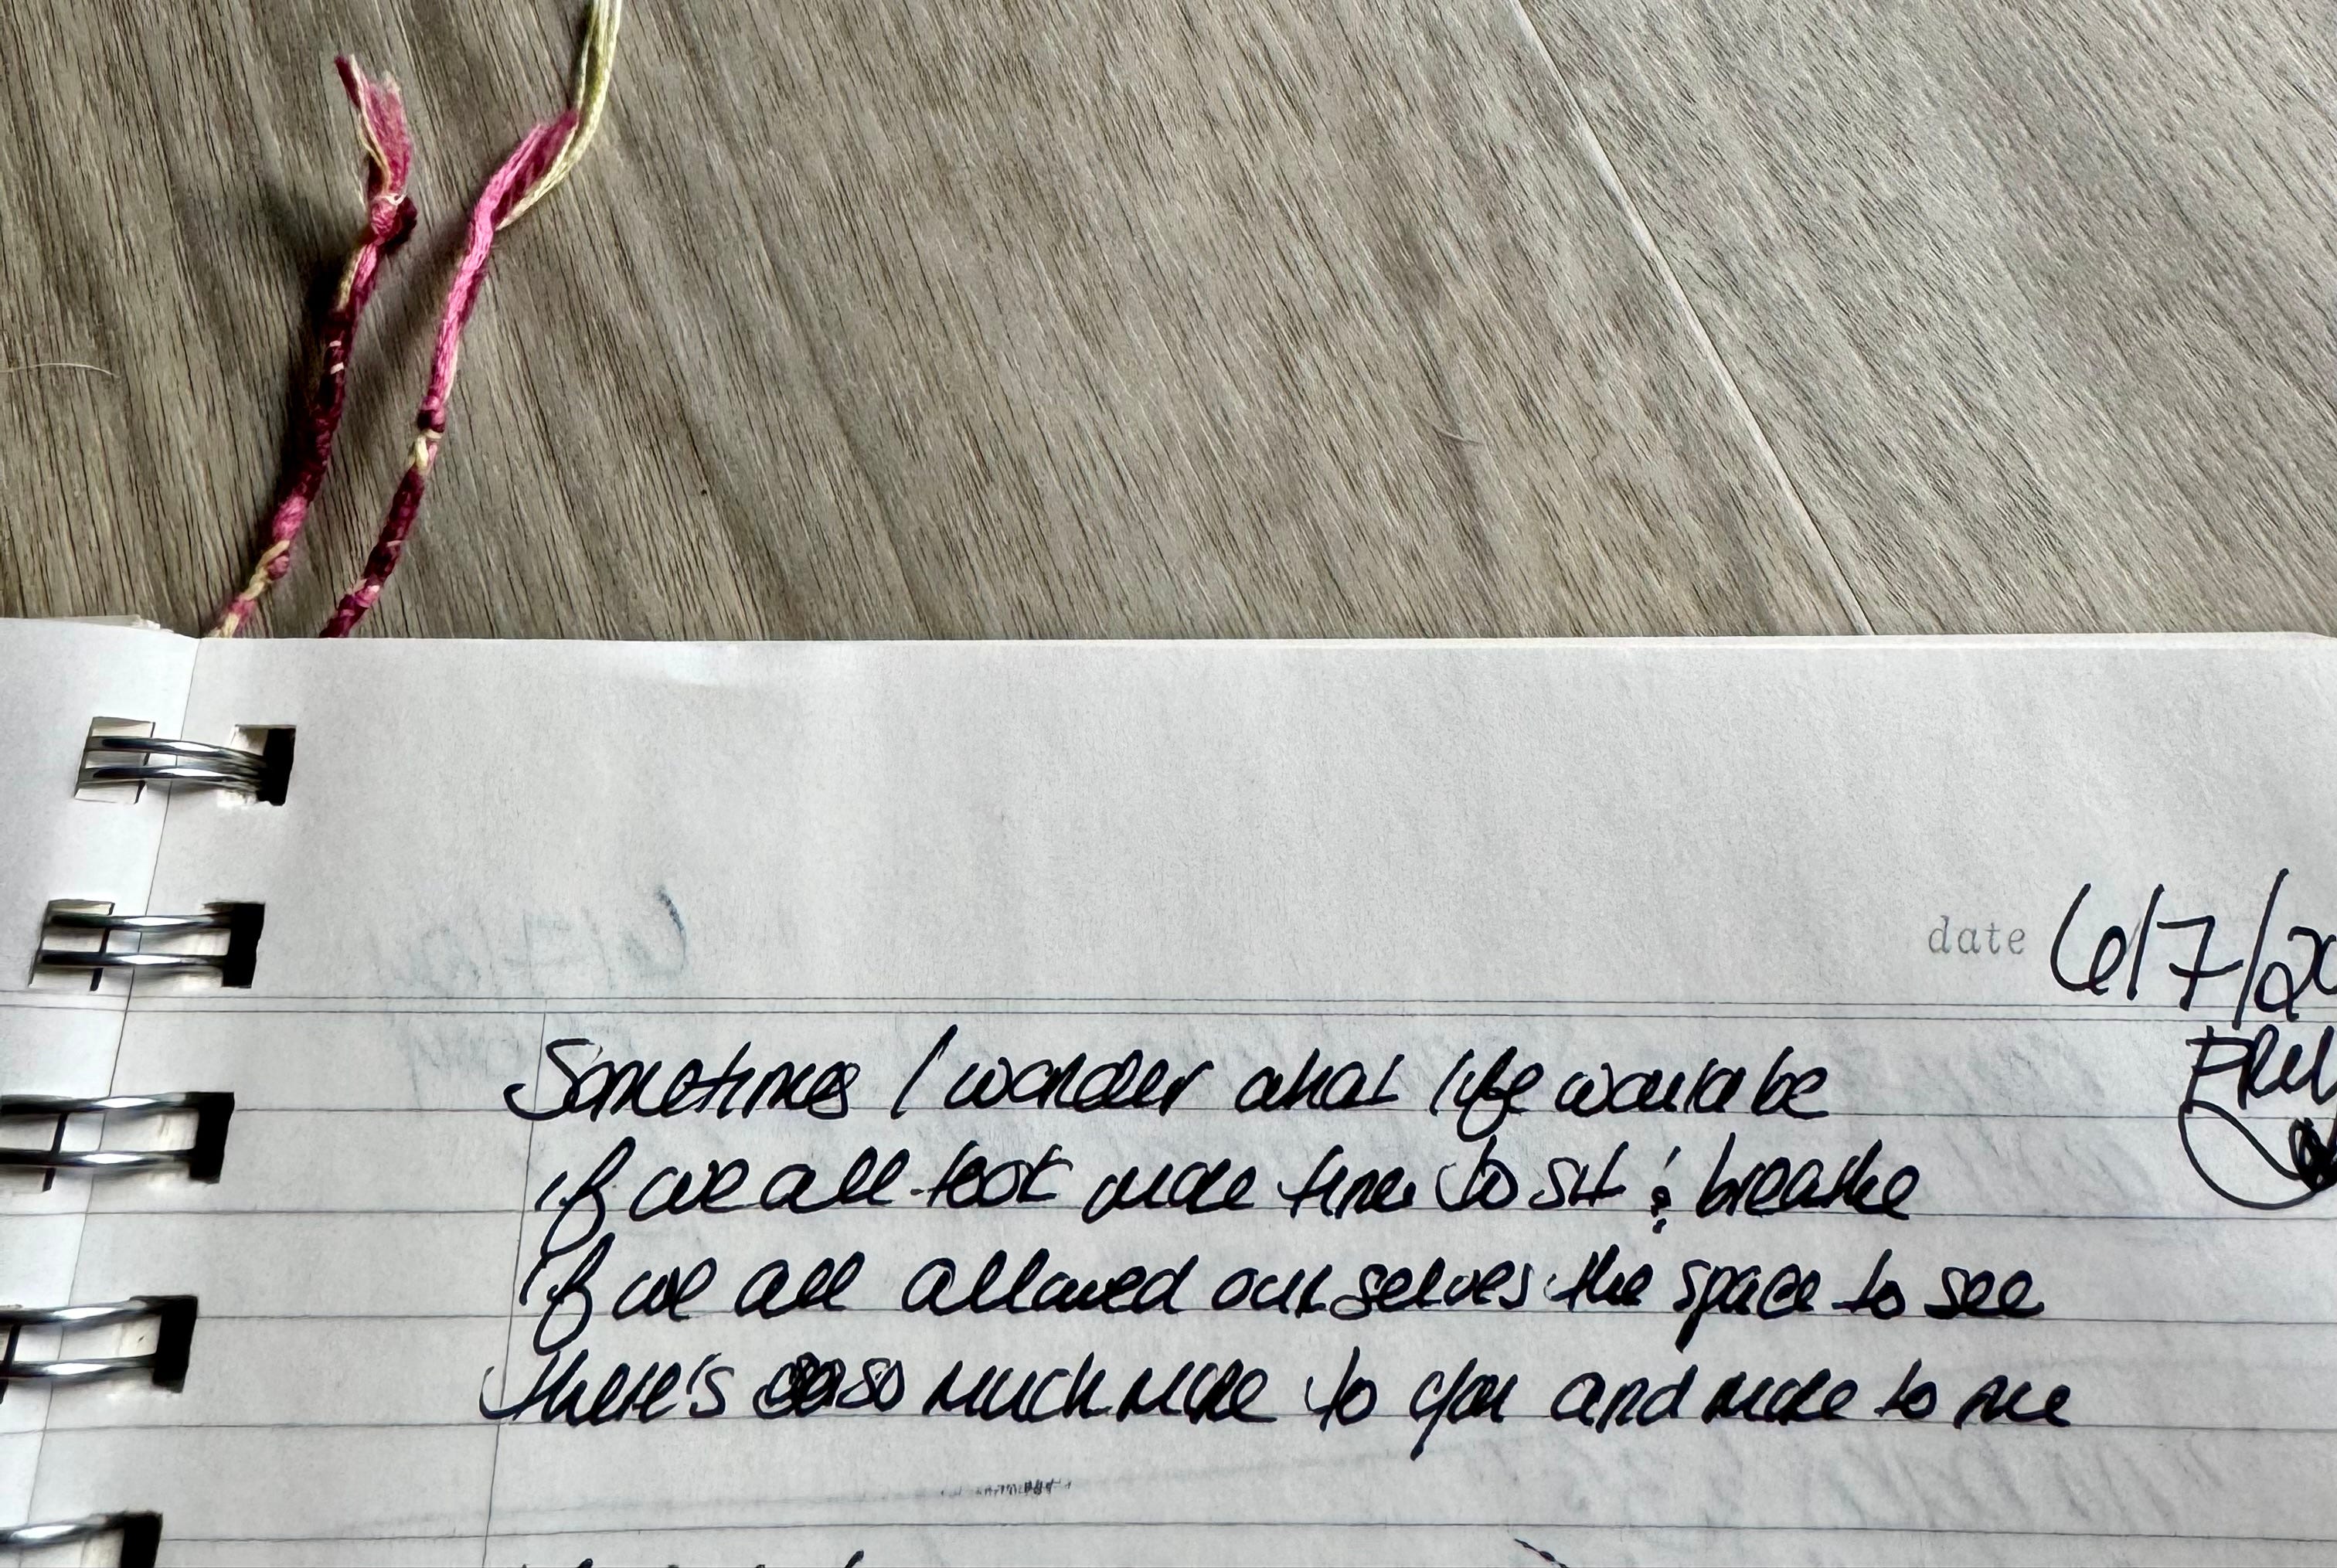 date 6/7/20
Sometimes I wonder what life would be
if we all took more time to sit & breathe
If we all allowed ourselves the space to see
there's so much more to you and more to me